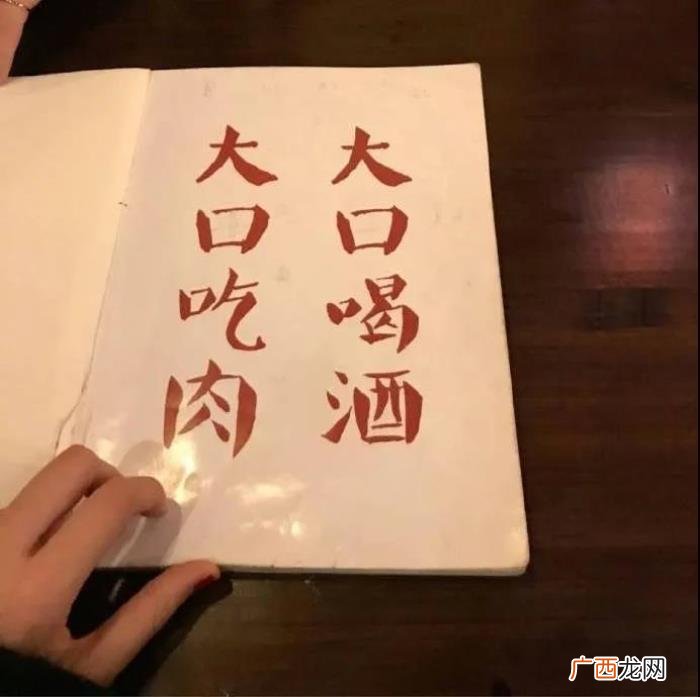 大口喝酒
大口吃肉
广西龙网